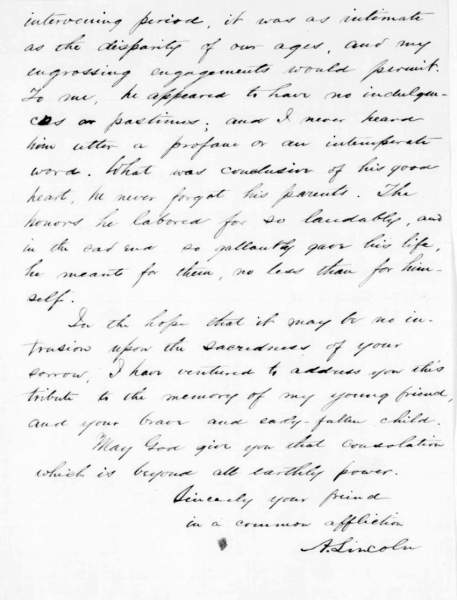 intervening period, it was as intimate
as the disparity of our ages, and my
engrossing engagements would permit.
To me, he appeared to have no indulgen-
ces or pastimes; and I never heard
him utter a profane or an intemperate
word. What was conclusive of his good
heart, he never forgot his parents. The
honors he labored for so laudably, and
in the sad end so gallantly gave his life,
he meant for them, no less than for him-
self.
In the hope that it may be no in-
trusion upon the sacredness of your
sorrow, I have ventured to address you this
tribute to the memory of my young friend,
and your brave and early-fallen child.
May God give you that consolation
which is beyond all earthly power.
Sincerely your friend
in a common affliction
A. Lincoln